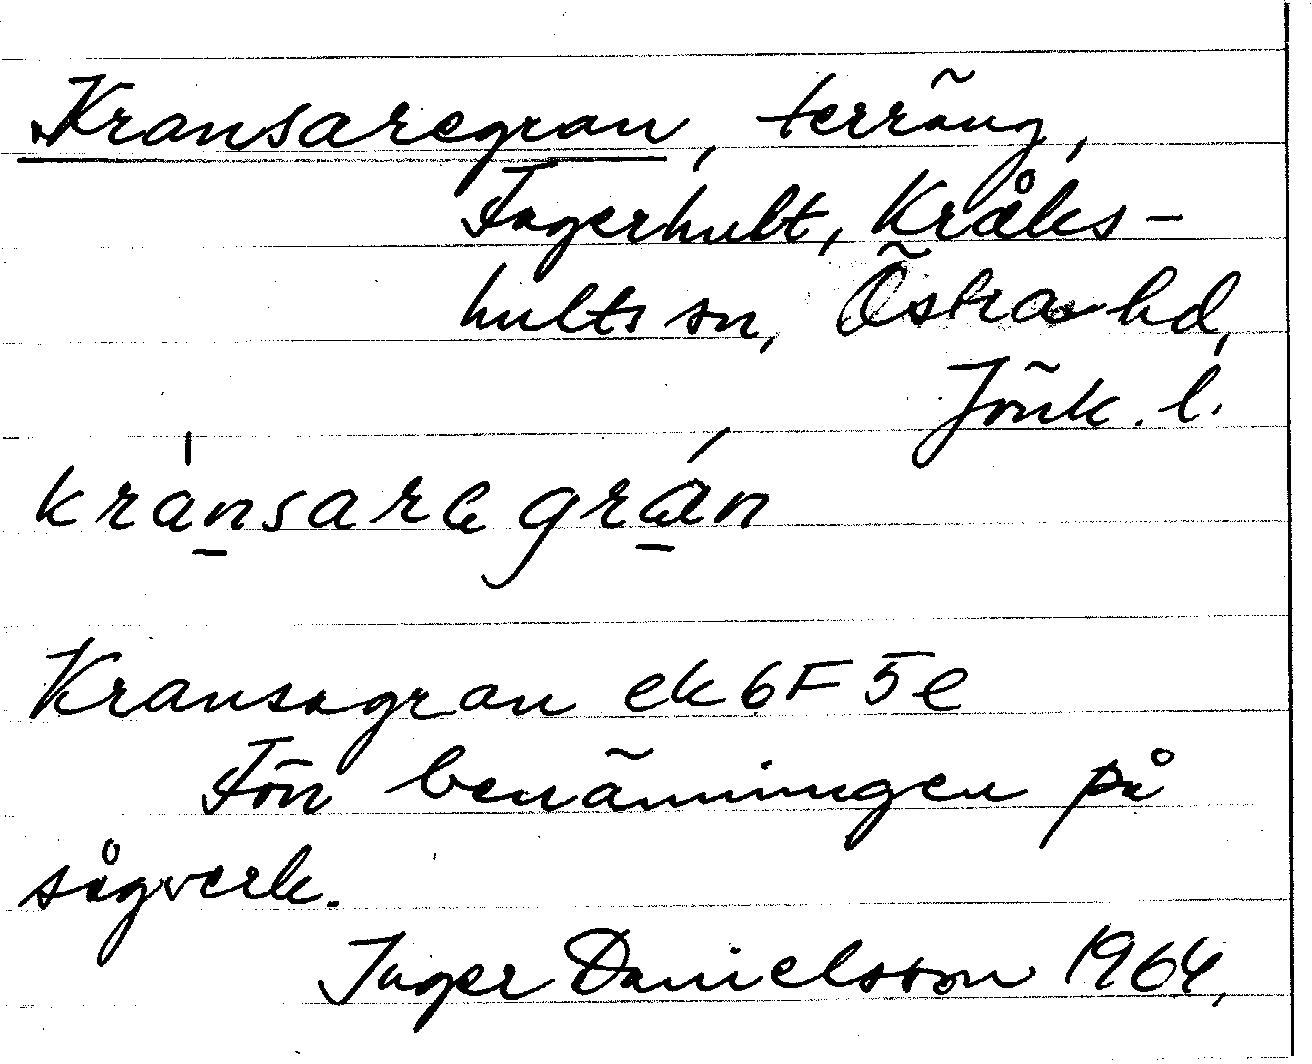 Kransaregran, terräng,
Fagerhult, Kråks-
hults sn, Östra hd,
Jönk. l.
krànsaregrán
Kransagran ek 6F5e
Förr benämningen på
sågverk.
Inger Danielsson 1964,